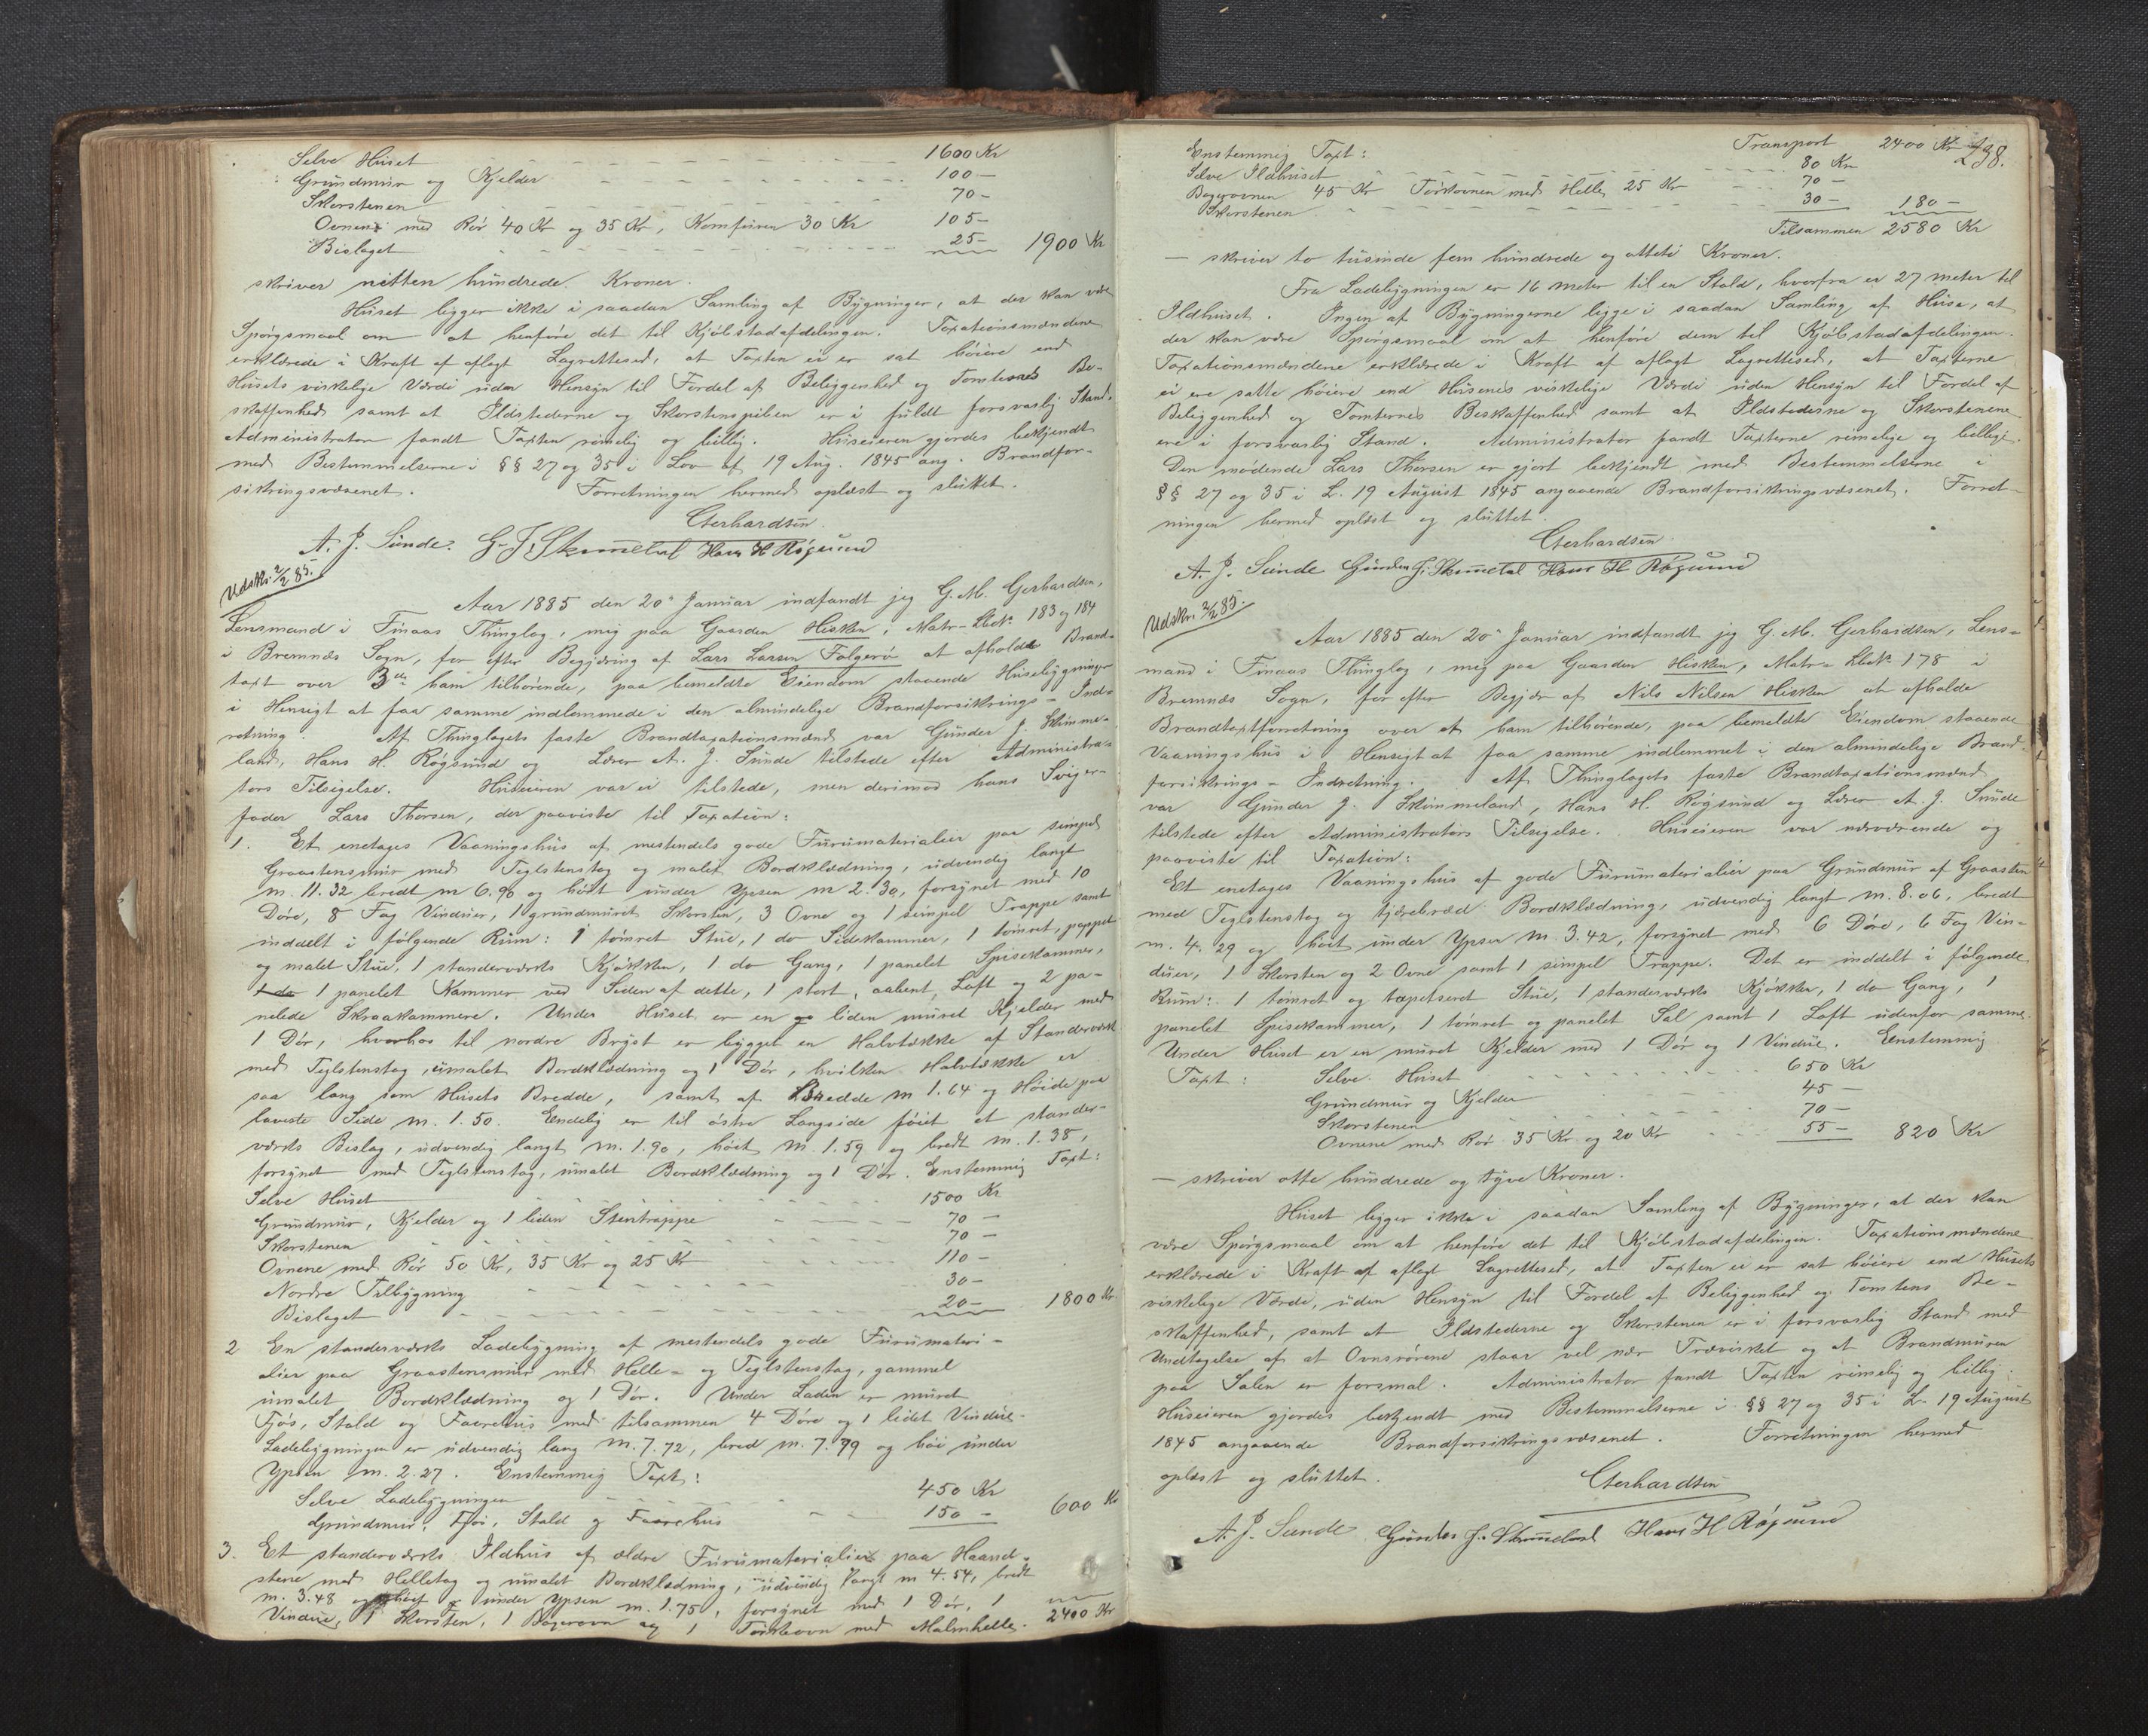 Selve Huset 1600 Kr
Grundmur og Kjelder 100 —
Skorstenen 70 —
Ovnene med Rør 40 Kr og 35 Kr, Komfuren 30 Kr 105 —
Bislaget 25 — 1900 Kr
skriver nitten hundrede Kroner.
Huset ligger ikke i saadan Samling af Bygninger, at der kan være
Spørgsmaal om at henføre det til Kjøbstadafdelingen. Taxationsmændene
erklærede i Kraft af aflagt Lagrettesed, at Taxten ei er sat høiere end
Husets virkelige Værdi uden Hensyn til Fordel af Beliggenhed og Tomtens Be-
skaffenhed samt at Ildstederne og Skorstenspiben er i fuldt forsvarlig Stand.
Administrator fandt Taxten rimelig og billig. Huseieren gjordes bekjendt
med Bestemmelserne i §§ 27 og 35 i Lov af 19 Aug. 1845 ang. Brandfor-
sikringsvæsenet. Forretningen hermed oplæst og sluttet.
Gerhardsen
A. J. Sunde. G. J. Skimmeland Hans H Røgsund
Udskr. 2/2 85.
Aar 1885 den 20de Januar indfandt jeg G. M. Gerhardsen,
Lensmand i Finaas Thinglag, mig paa Gaarden Hisken, Matr-Lbek 183 og 184
i Bremnæs Sogn, for efter Begjæring af Lars Larsen Folgerø at afholde Brand-
taxt over 3de ham tilhørende, paa bemeldte Eiendom staaende Husebygninger
i Hensigt at faa samme indlemmede i den almindelige Brandforsikrings-Ind-
retning. Af Thinglagets faste Brandtaxationsmænd var Gunder J. Skimme-
land, Hans H. Røgsund og Lærer A. J. Sunde tilstede efter Administra-
tors Tilsigelse. Huseieren var ei tilstede, men derimod hans Sviger-
fader Lars Thorsen, der paaviste til Taxation:
1. Et enetages Vaaningshus af mestendels gode Furumaterialier paa simpel
Graastensmur med Teglstenstag og malet Bordklædning, udvendig langt
m. 11.32 bredt m 6.90 og høit under Ypsen m 2.30, forsynet med 10
Døre, 8 Fag Vinduer, 1 grundmuret Skorsten, 3 Ovne og 1 simpel Trappe samt
inddelt i følgende Rum: 1 tømret Stue, 1 do Sidekammer, 1 tømret, pappet
og malet Stue, 1 standerværks Kjøkken, 1 do Gang, 1 panelet Spisekammer,
1 do 1 panelet Kammer ved Siden af dette, 1 stort, aabent, Loft og 2 pa-
nelede Skraakammere. Under Huset er en liden muret Kjelder med
1 Dør, hvorhos til nordre Bryst er bygget en Halvtække af Standerværk
med Teglstenstag, umalet Bordklædning og 1 Dør, hvilken Halvtække er
saa lang som Husets Bredde, samt af Bredde m 1.64 og Høide paa
laveste Side m. 1.50. Endelig er til østre Langside føiet et stander-
værks Bislag, udvendig langt m. 1.90, høit m. 1.59 og bredt m. 1.38,
forsynet med Teglstenstag, umalet Bordklædning og 1 Dør. Enstemmig Taxt:
Selve Huset 1500 Kr
Grundmur, Kjelder og 1 liden Stentrappe 70 —
Skorstenen 70 —
Ovnene med Rør 50 Kr, 35 Kr og 25 Kr 110 —
Nordre Tilbygning 30 —
Bislaget 20 — 1800 Kr
2 En standerværks Ladebygning af mestendels gode Furumateri-
alier paa Graastensmur med Helle- og Teglstenstag, gammel
umalet Bordklædning og 1 Dør. Under Laden er muret
Fjøs, Stald og Faarehus med tilsammen 4 Døre og 1 lidet Vindue.
Ladebygningen er udvendig lang m. 7.72, bred m. 7.79 og høi under
Ypsen m. 2.27. Enstemmig Taxt:
Selve Ladebygningen 450 Kr
Grundmur, Fjøs, Stald og Faarehus 150 — 600 Kr
3. Et standerværks Ildhus af ældre Furumaterialier paa Haand-
stene med Helletag og umalet Bordklædning, udvendig langt m 4.54, bredt
m. 3.48 og høit under Ypsen m. 1.75, forsynet med 1 Dør, 1
Vindue, 1 Skorsten, 1 Bagerovn og 1 Tørkeovn med Malmhelle. 2400 Kr
Transport 2400 Kr 238.
Enstemmig Taxt:
Selve Ildhuset 80 Kr
Bagerovnen 45 Kr Tørkeovnen med Helle 25 Kr 70 —
Skorstenen 30 — 180 —
Tilsammen 2580 Kr
— skriver to tusinde fem hundrede og otteti Kroner.
Fra Ladebygningen er 16 meter til en Stald, hvorfra er 27 meter til
Ildhuset. Ingen af Bygningerne ligge i saadan Samling af Huse, at
der kan være Spørgsmaal om at henføre dem til Kjøbstadafdelingen.
Taxationsmændene erklærede i Kraft af aflagt Lagrettesed, at Taxterne
ei ere satte høiere end Husenes virkelige Værdi uden Hensyn til Fordel af
Beliggenhed og Tomternes Beskaffenhed samt at Ildstederne og Skorstenene
ere i forsvarlig Stand. Administrator fandt Taxterne rimelige og billige.
Den mødende Lars Thorsen er gjort bekjendt med Bestemmelserne i
§§ 27 og 35 i L. 19 August 1845 angaaende Brandforsikringsvæsenet. Forret-
ningen hermed oplæst og sluttet.
Gerhardsen
A. J. Sunde Gunder J. Skimmeland Hans H Røgsund
Udskr. 2/2 85.
Aar 1885 den 20de Januar indfandt jeg G. M. Gerhardsen, Lens-
mand i Finaas Thinglag, mig paa Gaarden Hisken, Matr-Lbek 178 i
Bremnæs Sogn, for efter Begjær af Nils Nilsen Hisken at afholde
Brandtaxtforretning over et ham tilhørende, paa bemeldte Eiendom staaende
Vaaningshus i Hensigt at faa samme indlemmet i den almindelige Brand-
forsikrings-Indretning. Af Thinglagets faste Brandtaxationsmænd
var Gunder J. Skimmeland, Hans H. Røgsund og Lærer A. J. Sunde
tilstede efter Administrators Tilsigelse. Huseieren var nærværende og
paaviste til Taxation:
Et enetages Vaaningshus af gode Furumaterialier paa Grundmur af Graasten
med Teglstenstag og tjærebræd Bordklædning, udvendig langt m. 8.06, bredt
m. 4.29 og høit under Ypsen m. 3.42, forsynet med 6 Døre, 6 Fag Vin-
duer, 1 Skorsten og 2 Ovne samt 1 simpel Trappe. Det er inddelt i følgende
Rum: 1 tømret og tapetseret Stue, 1 standerværks Kjøkken, 1 do Gang, 1
panelet Spisekammer, 1 tømret og panelet Sal samt 1 Loft udenfor samme.
Under Huset er en muret Kjelder med 1 Dør og 1 Vindue. Enstemmig
Taxt: Selve Huset 650 Kr
Grundmur og Kjelder 45 —
Skorstenen 70 —
Ovnene med Rør 35 Kr og 20 Kr 55 — 820 Kr
— skriver otte hundrede og tyve Kroner.
Huset ligger ikke i saadan Samling af Bygninger, at der kan
være Spørgsmaal om at henføre det til Kjøbstadafdelingen. Taxationsmændene
erklærede i Kraft af aflagt Lagrettesed, at Taxten ei er sat høiere end Husets
virkelige Værdi, uden Hensyn til Fordel af Beliggenhed og Tomtens Be-
skaffenhed, samt at Ildstederne og Skorstenen er i forsvarlig Stand med
Undtagelse af at Ovnsrørene staar vel nær Trævirket og at Brandmuren
paa Salen er forsmal. Administrator fandt Taxten rimelig og billig.
Huseieren gjordes bekjendt med Bestemmelserne i §§ 27 og 35 i L. 19 August
1845 angaaende Brandforsikringsvæsenet. Forretningen hermed
oplæst og sluttet.
Gerhardsen
A. J. Sunde Gunder J. Skimmeland Hans H Røgsund